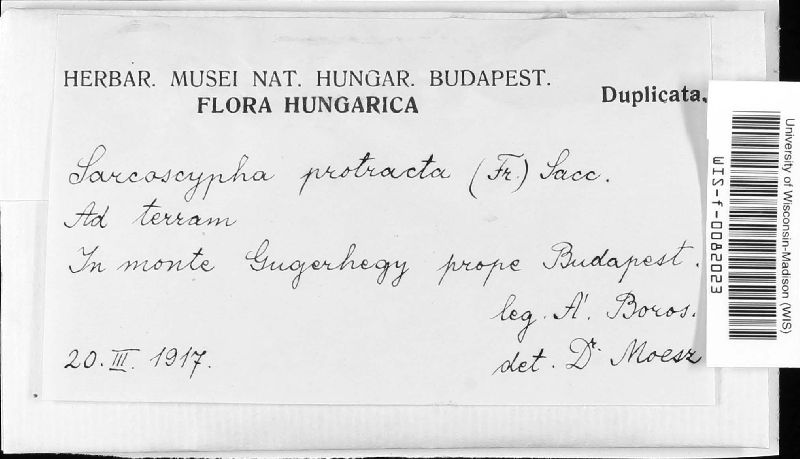 HERBAR. MUSEI NAT. HUNGAR. BUDAPEST.
FLORA HUNGARICA
Duplicata.
Sarcoscypha protracta (Fr.) Sacc.
Ad terram
In monte Gugerhegy prope Budapest.
leg. Á. Boros.
20. III. 1917.
det. Dr. Moesz
University of Wisconsin-Madison (WIS)
WIS-f-0082023